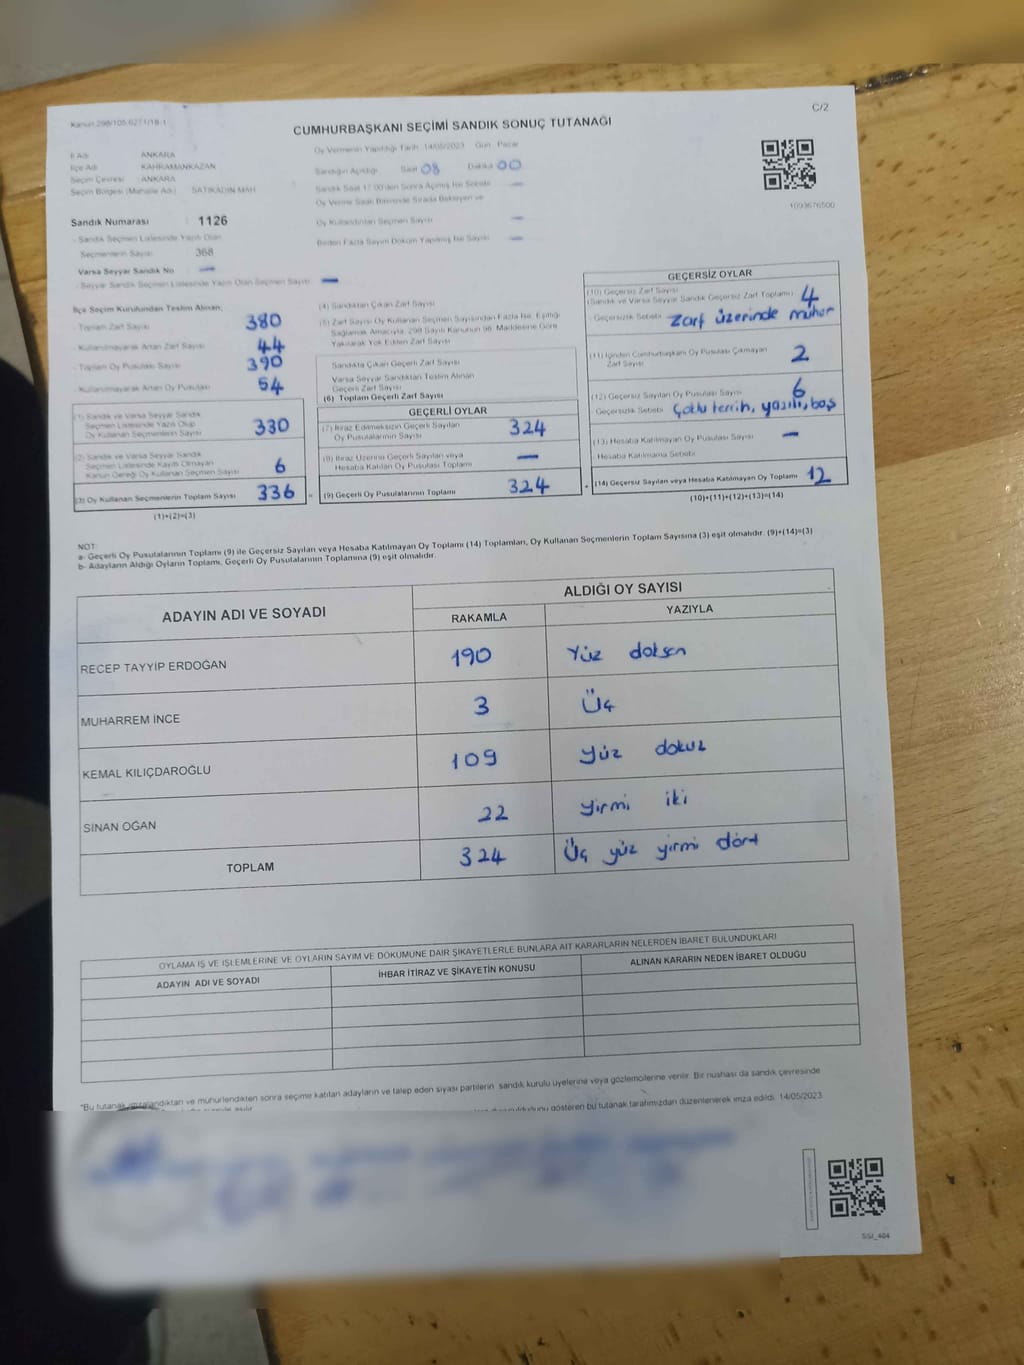 Kanun 298/105 6271/18-1
C/2
CUMHURBAŞKANI SEÇİMİ SANDIK SONUÇ TUTANAĞI
İl Adı ANKARA
İlçe Adı KAHRAMANKAZAN
Seçim Çevresi ANKARA
Seçim Bölgesi (Mahalle Adı) SATIKADIN MAH
Sandık Numarası 1126
- Sandık Seçmen Listesinde Yazılı Olan
Seçmenlerin Sayısı 368
Varsa Seyyar Sandık No —
- Seyyar Sandık Seçmen Listesinde Yazılı Olan Seçmen Sayısı —
Oy Vermenin Yapıldığı Tarih 14/05/2023 Gün Pazar
Sandığın Açıldığı Saat 08 Dakika 00
Sandık Saat 17:00'den Sonra Açılmış İse Sebebi —
Oy Verme Saati Bitiminde Sırada Bekleyen ve
Oy Kullandırılan Seçmen Sayısı —
Birden Fazla Sayım Döküm Yapılmış İse Sayısı —
1093676500
İlçe Seçim Kurulundan Teslim Alınan;
- Toplam Zarf Sayısı 380
- Kullanılmayarak Artan Zarf Sayısı 44
- Toplam Oy Pusulası Sayısı 390
- Kullanılmayarak Artan Oy Pusulası 54
(1) Sandık ve Varsa Seyyar Sandık
Seçmen Listesinde Yazılı Olup
Oy Kullanan Seçmenlerin Sayısı 330
(2) Sandık ve Varsa Seyyar Sandık
Seçmen Listesinde Kayıtlı Olmayan
Kanun Gereği Oy Kullanan Seçmen Sayısı 6
(3) Oy Kullanan Seçmenlerin Toplam Sayısı 336 =
(1)+(2)=(3)
(4) Sandıktan Çıkan Zarf Sayısı
(5) Zarf Sayısı Oy Kullanan Seçmen Sayısından Fazla İse, Eşitliği
Sağlamak Amacıyla, 298 Sayılı Kanunun 98. Maddesine Göre
Yakılarak Yok Edilen Zarf Sayısı
Sandıkta Çıkan Geçerli Zarf Sayısı
Varsa Seyyar Sandıktan Teslim Alınan
Geçerli Zarf Sayısı
(6) Toplam Geçerli Zarf Sayısı
GEÇERLİ OYLAR
(7) İtiraz Edilmeksizin Geçerli Sayılan
Oy Pusulalarının Sayısı 324
(8) İtiraz Üzerine Geçerli Sayılan veya
Hesaba Katılan Oy Pusulası Toplamı —
(9) Geçerli Oy Pusulalarının Toplamı 324 +
GEÇERSİZ OYLAR
(10) Geçersiz Zarf Sayısı
(Sandık ve Varsa Seyyar Sandık Geçersiz Zarf Toplamı) 4
- Geçersizlik Sebebi Zarf üzerinde mühür
(11) İçinden Cumhurbaşkanı Oy Pusulası Çıkmayan
Zarf Sayısı 2
(12) Geçersiz Sayılan Oy Pusulası Sayısı 6
Geçersizlik Sebebi Çoklu tercih, yazılı, boş
(13) Hesaba Katılmayan Oy Pusulası Sayısı —
Hesaba Katılmama Sebebi
(14) Geçersiz Sayılan veya Hesaba Katılmayan Oy Toplamı 12
(10)+(11)+(12)+(13)=(14)
NOT:
a- Geçerli Oy Pusulalarının Toplamı (9) ile Geçersiz Sayılan veya Hesaba Katılmayan Oy Toplamı (14) Toplamları, Oy Kullanan Seçmenlerin Toplam Sayısına (3) eşit olmalıdır. (9)+(14)=(3)
b- Adayların Aldığı Oyların Toplamı, Geçerli Oy Pusulalarının Toplamına (9) eşit olmalıdır.
ADAYIN ADI VE SOYADI ALDIĞI OY SAYISI
RAKAMLA YAZIYLA
RECEP TAYYİP ERDOĞAN 190 Yüz doksan
MUHARREM İNCE 3 Üç
KEMAL KILIÇDAROĞLU 109 Yüz dokuz
SİNAN OĞAN 22 Yirmi iki
TOPLAM 324 Üç yüz yirmi dört
OYLAMA İŞ VE İŞLEMLERİNE VE OYLARIN SAYIM VE DÖKÜMÜNE DAİR ŞİKAYETLERLE BUNLARA AİT KARARLARIN NELERDEN İBARET BULUNDUKLARI
ADAYIN ADI VE SOYADI İHBAR İTİRAZ VE ŞİKAYETİN KONUSU ALINAN KARARIN NEDEN İBARET OLDUĞU
"Bu tutanak imzalandıktan ve mühürlendikten sonra seçime katılan adayların ve talep eden siyasi partilerin sandık kurulu üyelerine veya gözlemcilerine verilir. Bir nüshası da sandık çevresinde
gösteren bu tutanak tarafımızdan düzenlenerek imza edildi. 14/05/2023
SSI_404